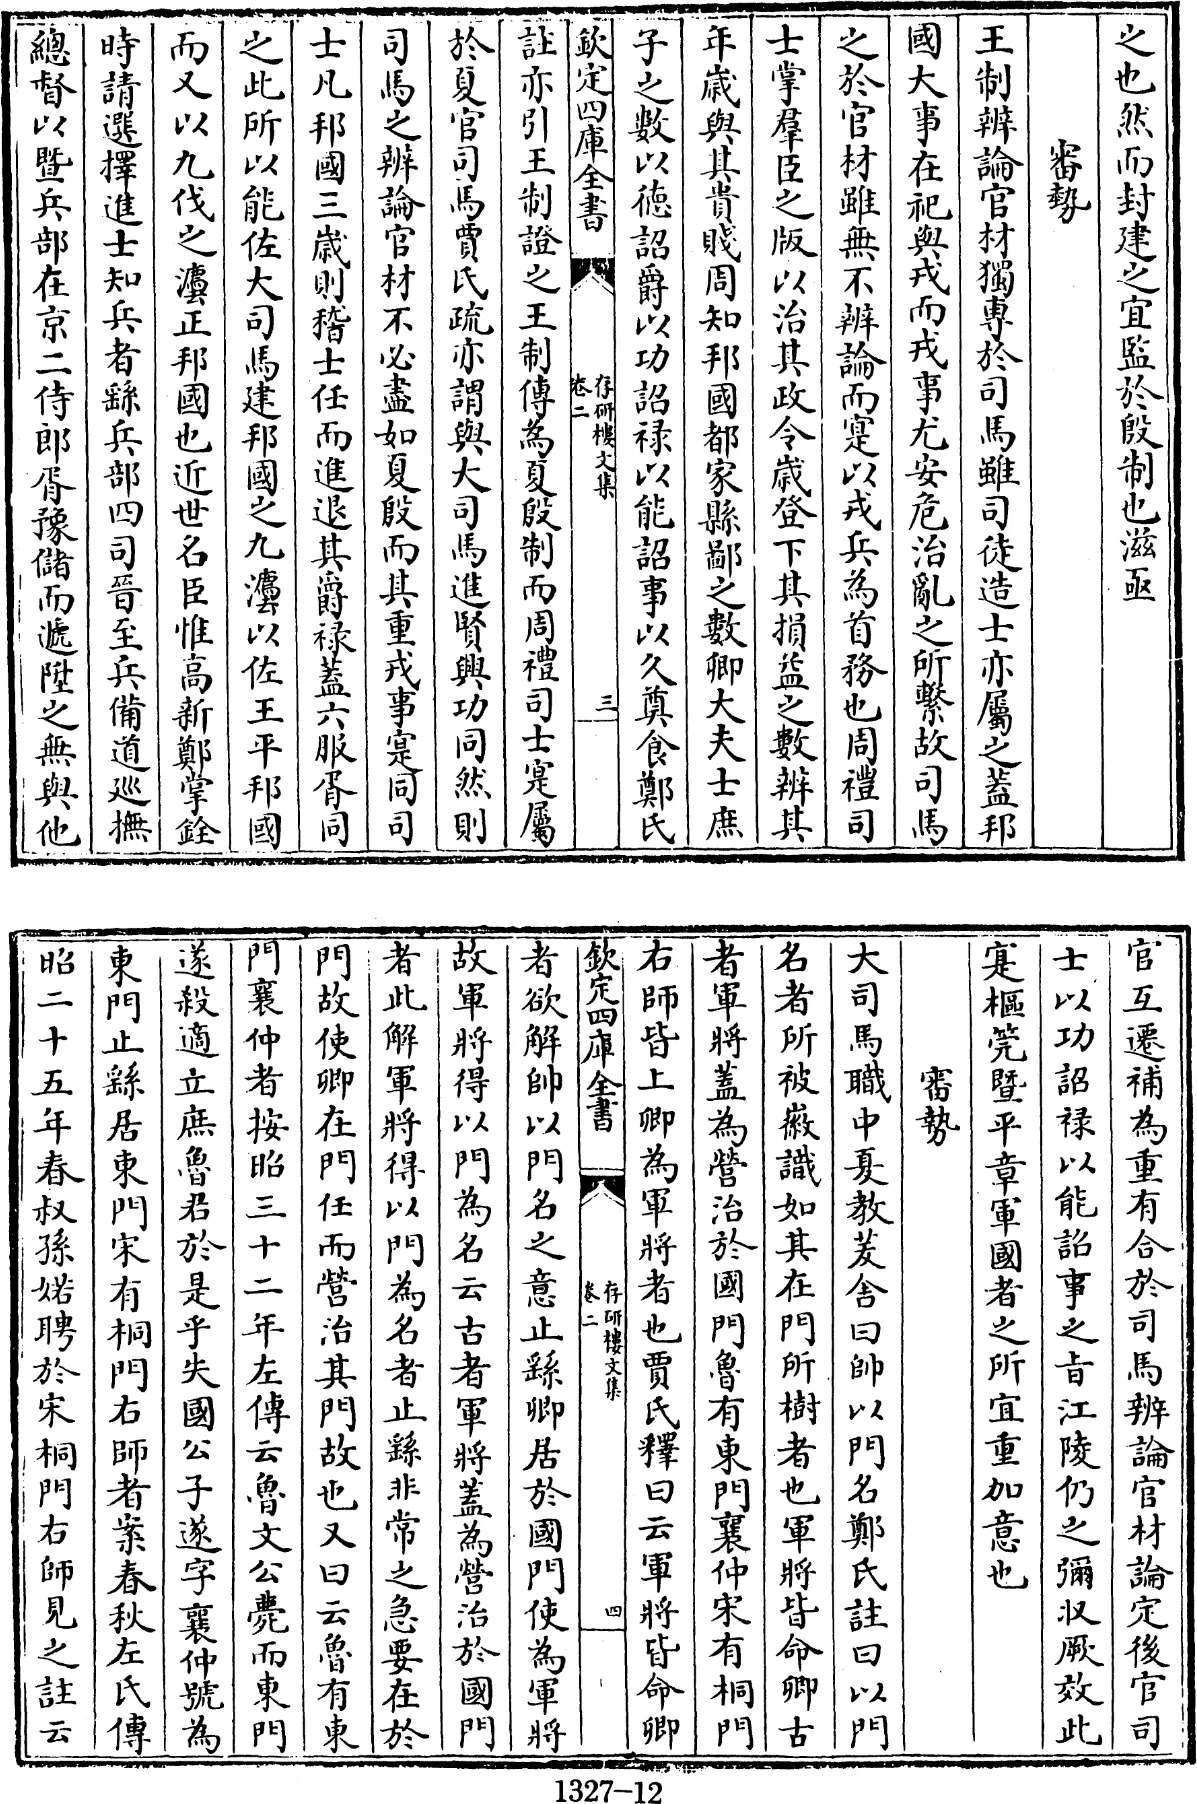 之也然而封建之宜監於殷制也滋亟
審勢
王制辨論官材獨專於司馬雖司徒造士亦屬之蓋邦
國大事在祀與戎而戎事尤安危治亂之所繫故司馬
之於官材雖無不辨論而寔以戎兵為首務也周禮司
士掌羣臣之版以治其政令歲登下其損益之數辨其
年歲與其貴賤周知邦國都家縣鄙之數卿大夫士庶
子之數以德詔爵以功詔禄以能詔事以久奠食鄭氏
欽定四庫全書
存研樓文集
卷二
三
註亦引王制證之王制傳為夏殷制而周禮司士寔屬
於夏官司馬賈氏疏亦謂與大司馬進賢興功同然則
司馬之辨論官材不必盡如夏殷而其重戎事寔同司
士凡邦國三歲則稽士任而進退其爵禄蓋六服胥同
之此所以能佐大司馬建邦國之九灋以佐王平邦國
而又以九伐之灋正邦國也近世名臣惟高新鄭掌銓
時請選擇進士知兵者繇兵部四司晉至兵備道巡撫
總督以暨兵部在京二侍郎胥豫儲而遞陞之無與他
官互遷補為重有合於司馬辨論官材論定後官司
士以功詔禄以能詔事之旨江陵仍之彌収厥效此
寔樞筦暨平章軍國者之所宜重加意也
審勢
大司馬職中夏教茇舍曰帥以門名鄭氏註曰以門
名者所被徽識如其在門所樹者也軍將皆命卿古
者軍將蓋為營治於國門魯有東門襄仲宋有桐門
右師皆上卿為軍將者也賈氏釋曰云軍將皆命卿
欽定四庫全書
存研樓文集
卷二
四
者欲解帥以門名之意止繇卿居於國門使為軍將
故軍將得以門為名云古者軍將蓋為營治於國門
者此解軍將得以門為名者止繇非常之急要在於
門故使卿在門任而營治其門故也又曰云魯有東
門襄仲者按昭三十二年左傳云魯文公薨而東門
遂殺適立庶魯君於是乎失國公子遂字襄仲號為
東門止繇居東門宋有桐門右師者案春秋左氏傳
昭二十五年春叔孫婼聘於宋桐門右師見之註云
1327-12